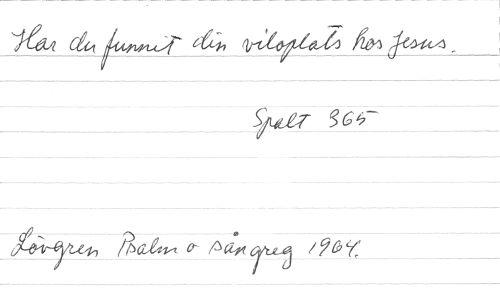 Har du funnit din viloplats hos Jesus.
Spalt 365
Lövgren Psalm o sångreg 1964.